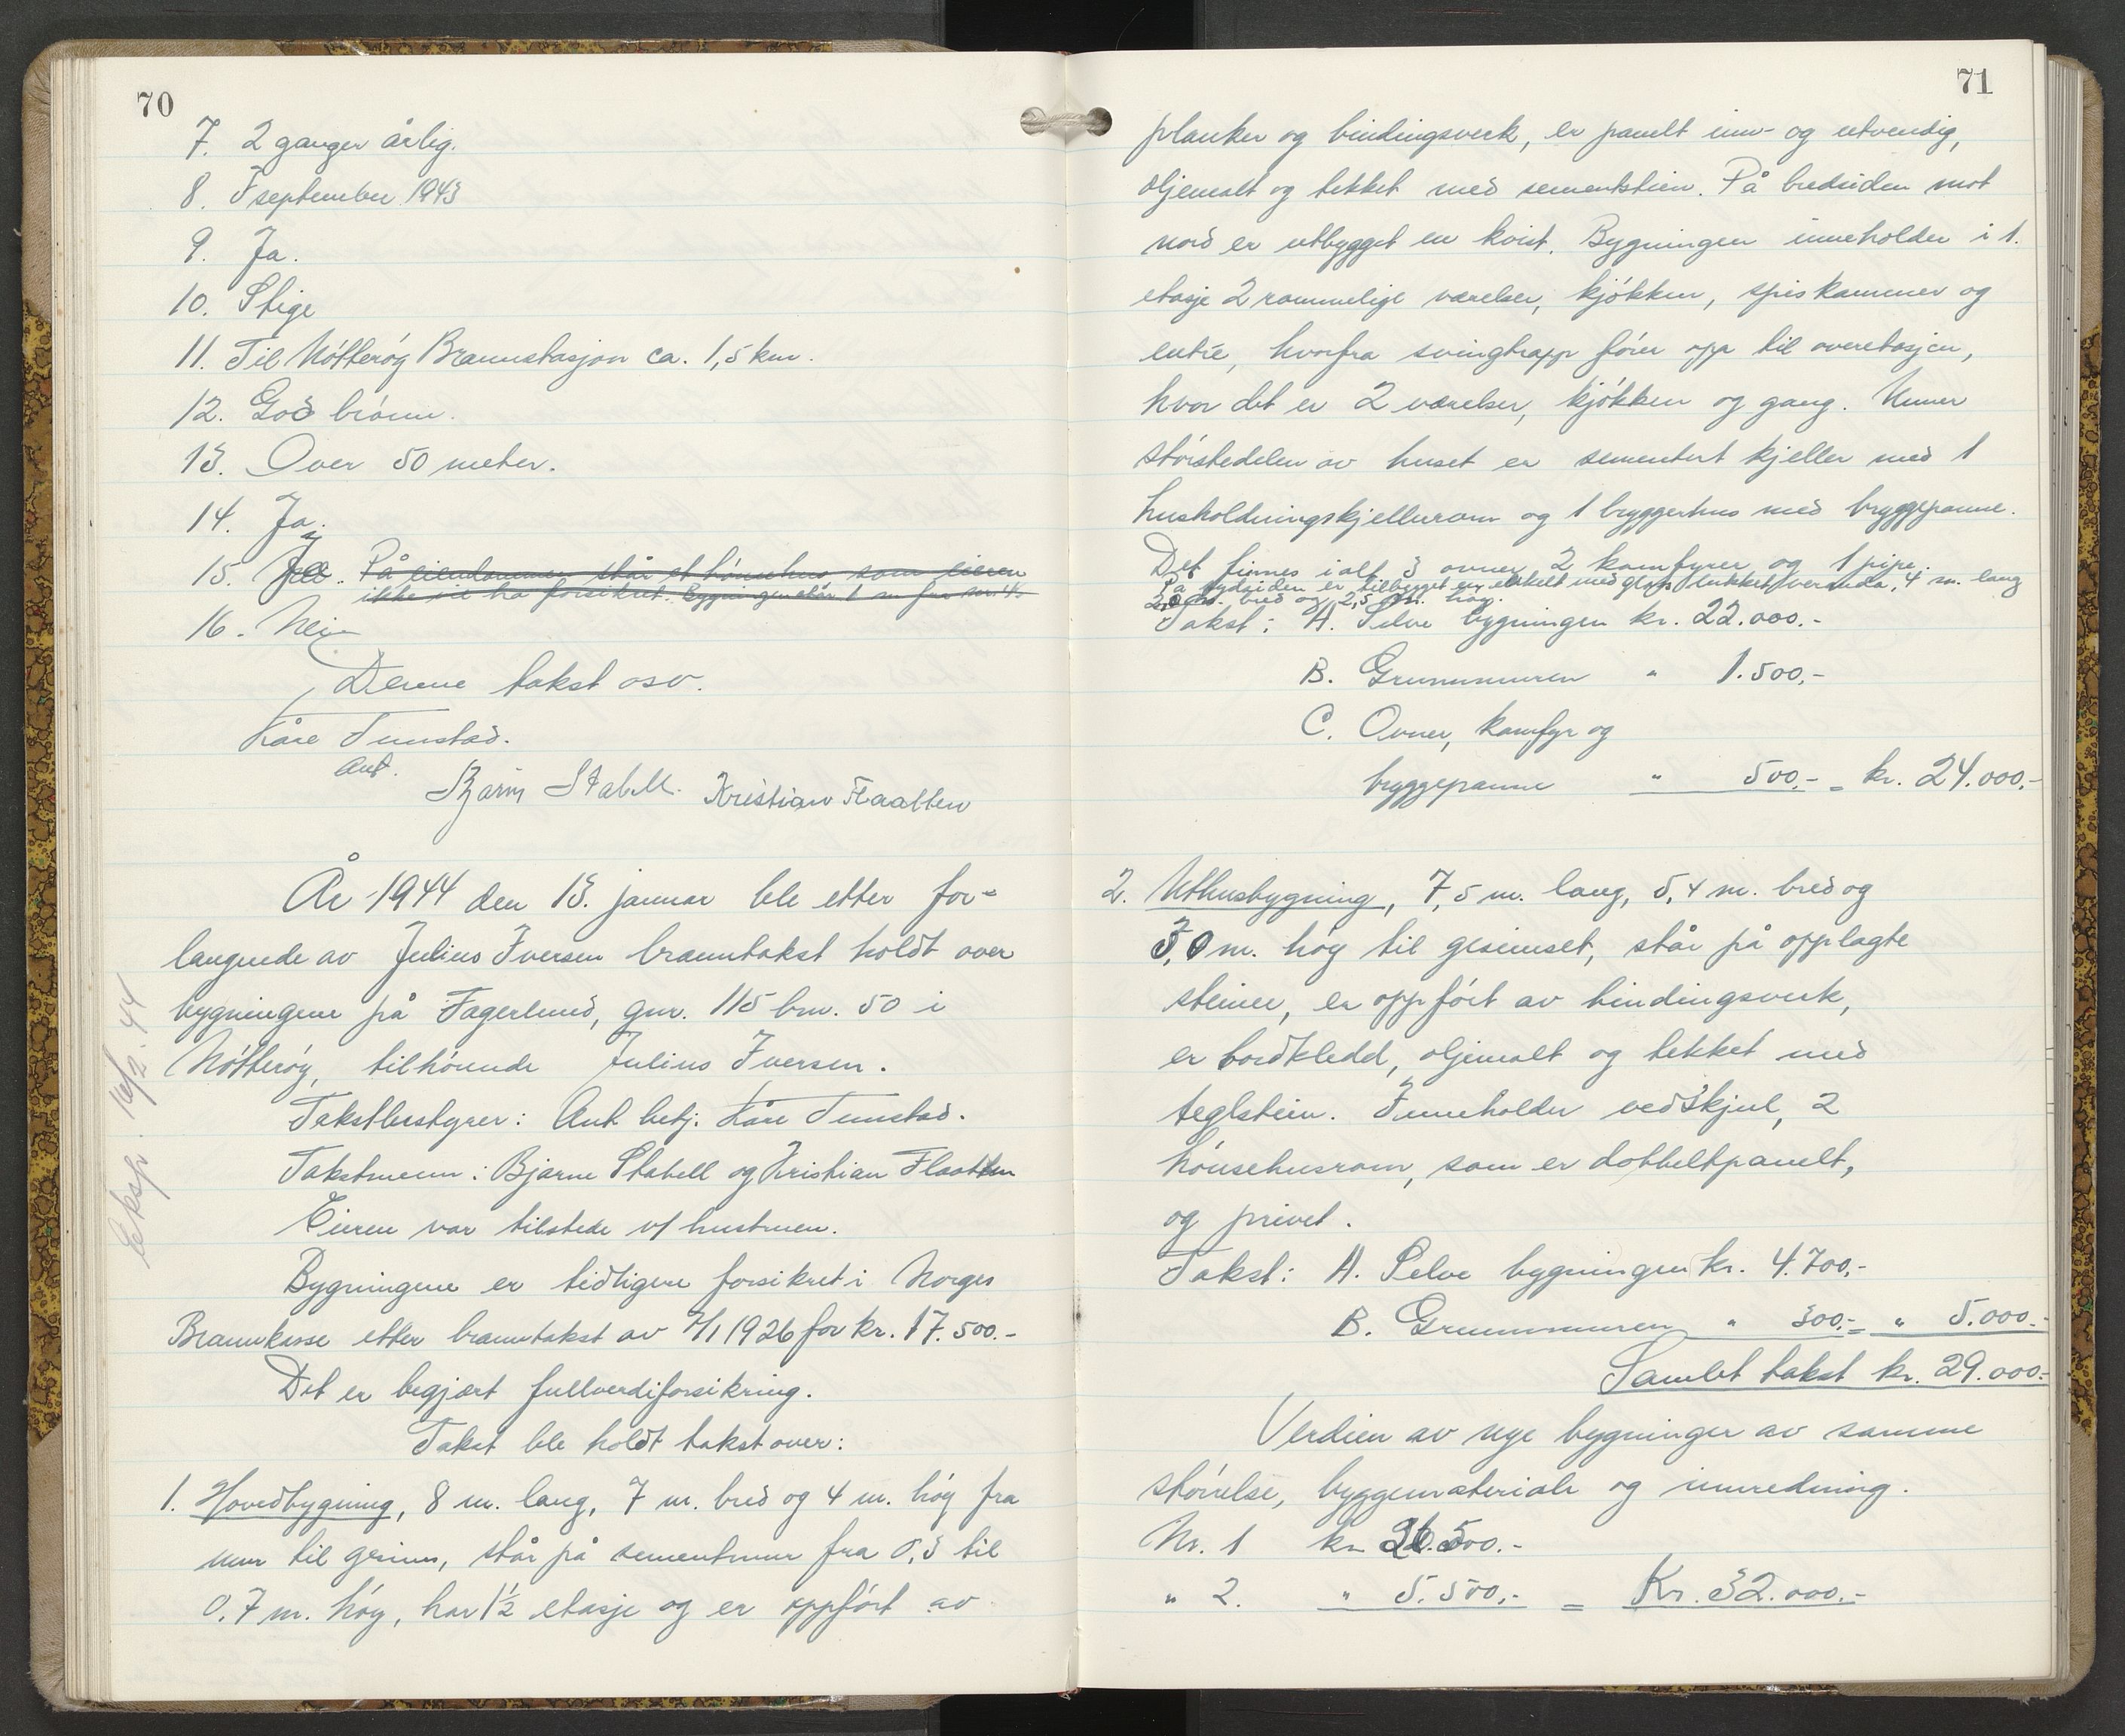 70
7. 2 ganger årlig.
8. I september 1943
9. Ja.
10. Stige
11. Til Nøtterøy Brannstasjon ca. 1,5 km.
12. God brønn.
13. Over 50 meter.
14. Ja.
15. På eiendommen står et hønsehus som eieren
ikke vil ha forsikret. Bygningen står 1 m fra nr. 4.
16. Nei
Denne takst osv.
Kåre Tunstad.
Aut.
Bjarne Stabell. Kristian Flaatten
År 1944 den 13. januar ble etter for-
langende av Julius Iversen branntakst holdt over
bygningene på Fagerlund, gnr. 115 bnr. 50 i
Nøtterøy, tilhørende Julius Iversen.
Takstbestyrer: Aut. betj. Kåre Tunstad.
Takstmenn: Bjarne Stabell og Kristian Flaatten
Eieren var tilstede v/ hustruen.
Bygningene er tidligere forsikret i Norges
Brannkasse etter branntakst av 7/1 1926 for kr. 17.500.-
Det er begjært fullverdiforsikring.
Takst ble holdt takst over:
1. Hovedbygning, 8 m. lang, 7 m. bred og 4 m. høy fra
mur til gesims, står på sementmur fra 0,3 til
0,7 m. høy, har 1½ etasje og er oppført av
Eksp. 16/2. 44
71
planker og bindingsverk, er panelt inn- og utvendig,
oljemalt og tekket med sementstein. På bredsiden mot
nord er utbygget en kvist. Bygningen inneholder i 1.
etasje 2 rommelige værelser, kjøkken, spiskammer og
entré, hvorfra svingtrapp fører opp til overetasjen,
hvor det er 2 værelser, kjøkken og gang. Under
størstedelen av huset er sementert kjeller med 1
husholdningskjellerrom og 1 bryggerhus med bryggepanne.
Det finnes ialt 3 ovner, 2 komfyrer og 1 pipe.
På sydsiden er tilbygget en enkelt med glass lukket veranda, 4 m. lang
2,0 m. bred og 2,5 m. høy.
Takst: A. Selve bygningen kr. 22.000.-
B. Grunnmuren " 1.500,-
C. Ovner, komfyr og
bryggepanne " 500,- = kr. 24.000,-
2. Uthusbygning, 7,5 m. lang, 5,4 m. bred og
3,0 m. høy til gesimset, står på opplagte
steiner, er oppført av bindingsverk,
er bordkledd, oljemalt og tekket med
teglstein. Inneholder vedskjul, 2
hønsehusrom, som er dobbeltpanelt,
og privet.
Takst: A. Selve bygningen kr. 4.700,-
B. Grunnmuren " 300,- = " 5.000.-
Samlet takst kr. 29.000.-
Verdien av nye bygninger av samme
størrelse, byggemateriale og innredning.
Nr. 1 kr. 26.500.-
" 2. " 5.500,- = Kr. 32.000.-